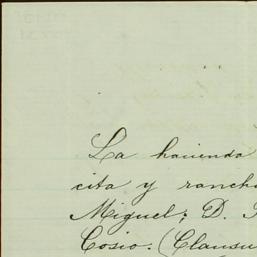 La hacienda
cita y ranch
Miguel; D.
Cosio. (Clausu